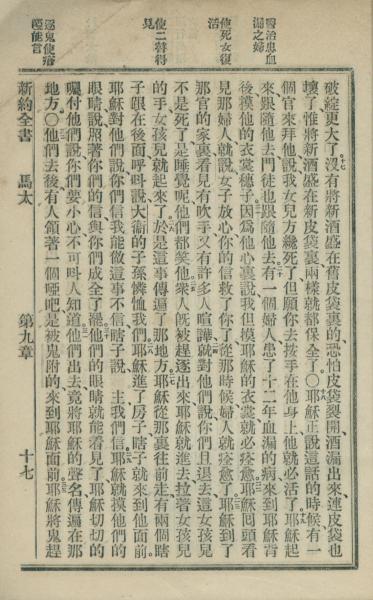 醫治患血
漏之婦
使死女復
活
使二瞽得
見
逐鬼使瘖
啞能言
破綻更大了沒有將新酒盛在舊皮袋裏的恐怕皮袋裂開酒漏出來連皮袋也
壞了惟將新酒盛在新皮袋裏兩樣就都保全了〇耶穌正說這話的時候有一
個官來拜他說我女兒方纔死了但願你去按手在他身上他就必活了耶穌起
來跟隨他去門徒也跟隨他去有一個婦人患了十二年血漏的病來到耶穌背
後摸他的衣裳䍁子因爲他心裏說我但摸耶穌的衣裳就必痊愈耶穌囘頭看
見那婦人就說女子放心你的信救了你了從那時候婦人就痊愈了耶穌到了
那官的家裏看見有吹手又有許多人喧譁就對他們說你們且退去這女孩兒
不是死了是睡覺呢他們都笑他衆人旣被趕逐出來耶穌就進去拉着女孩兒
的手女孩兒就起來了於是這事傳遍了那地方耶穌從那裏往前走有兩個瞎
子跟在後面呼呌說大衞的子孫憐恤我們耶穌進了房子瞎子就來到他面前
耶穌對他們說你們信我能做這事不信瞎子說 主我們信耶穌就摸他們的
眼睛說照著你們的信與你們成全了罷他們的眼睛就能看見了耶穌切切的
囑付他們說你們要小心不可呌人知道他們出去竟將耶穌的聲名傳遍在那
地方〇他們去後有人領著一個啞吧是被鬼附的來到耶穌面前耶穌將鬼趕
新約全書 馬太 第九章 十七